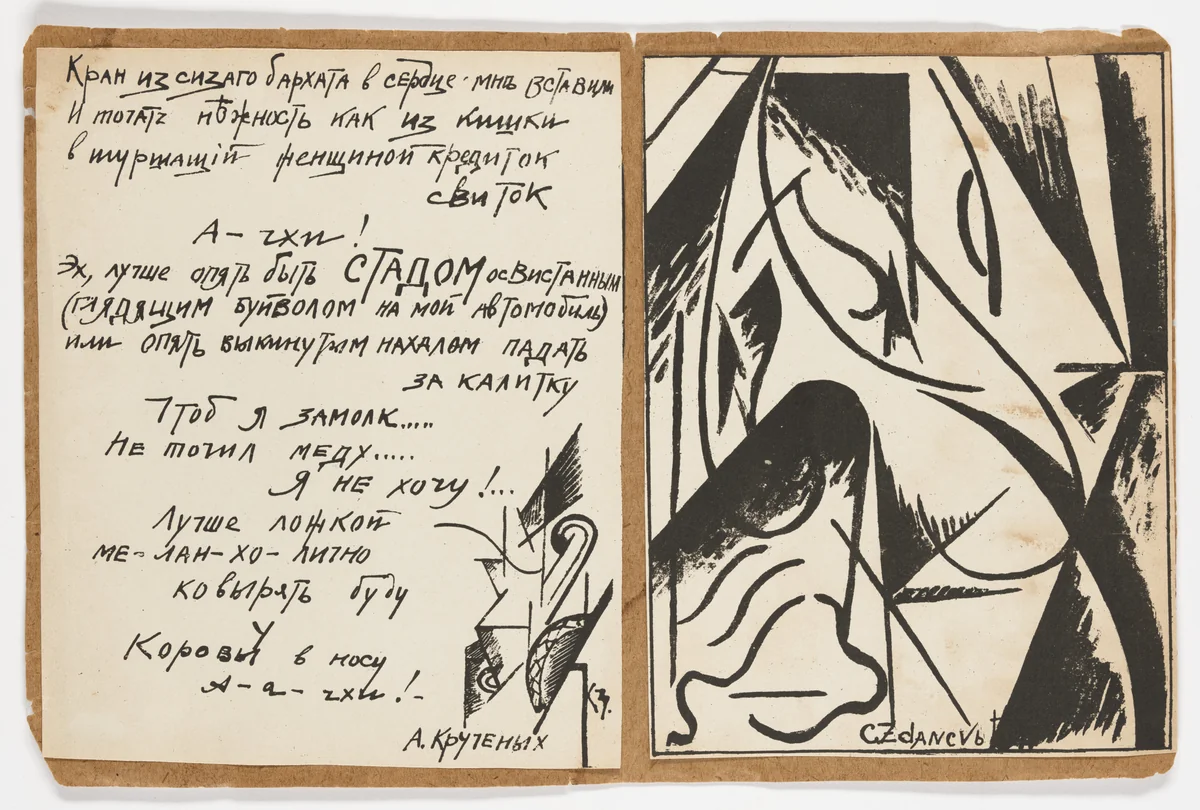 Кран из сизаго бархата в сердце мнѣ вставили
И тотатъ нѣжность как из кишки
в шуршащій женщиной кредиток
свиток
А-чхи!
Эх, лучше опять быть СТАДОМ освистанным
(глядящим буйволом на мой автомобиль)
или опять выкинутым нахалом падать
за калитку
Чтоб я замолк.....
Не точил меду.....
Я не хочу!...
Лучше ложкой
ме-лан-хо-лично
ковырять буду
Коровы в носу
А-а-чхи!-
А. Крученых
КЗ.
C.ZdANCVbt